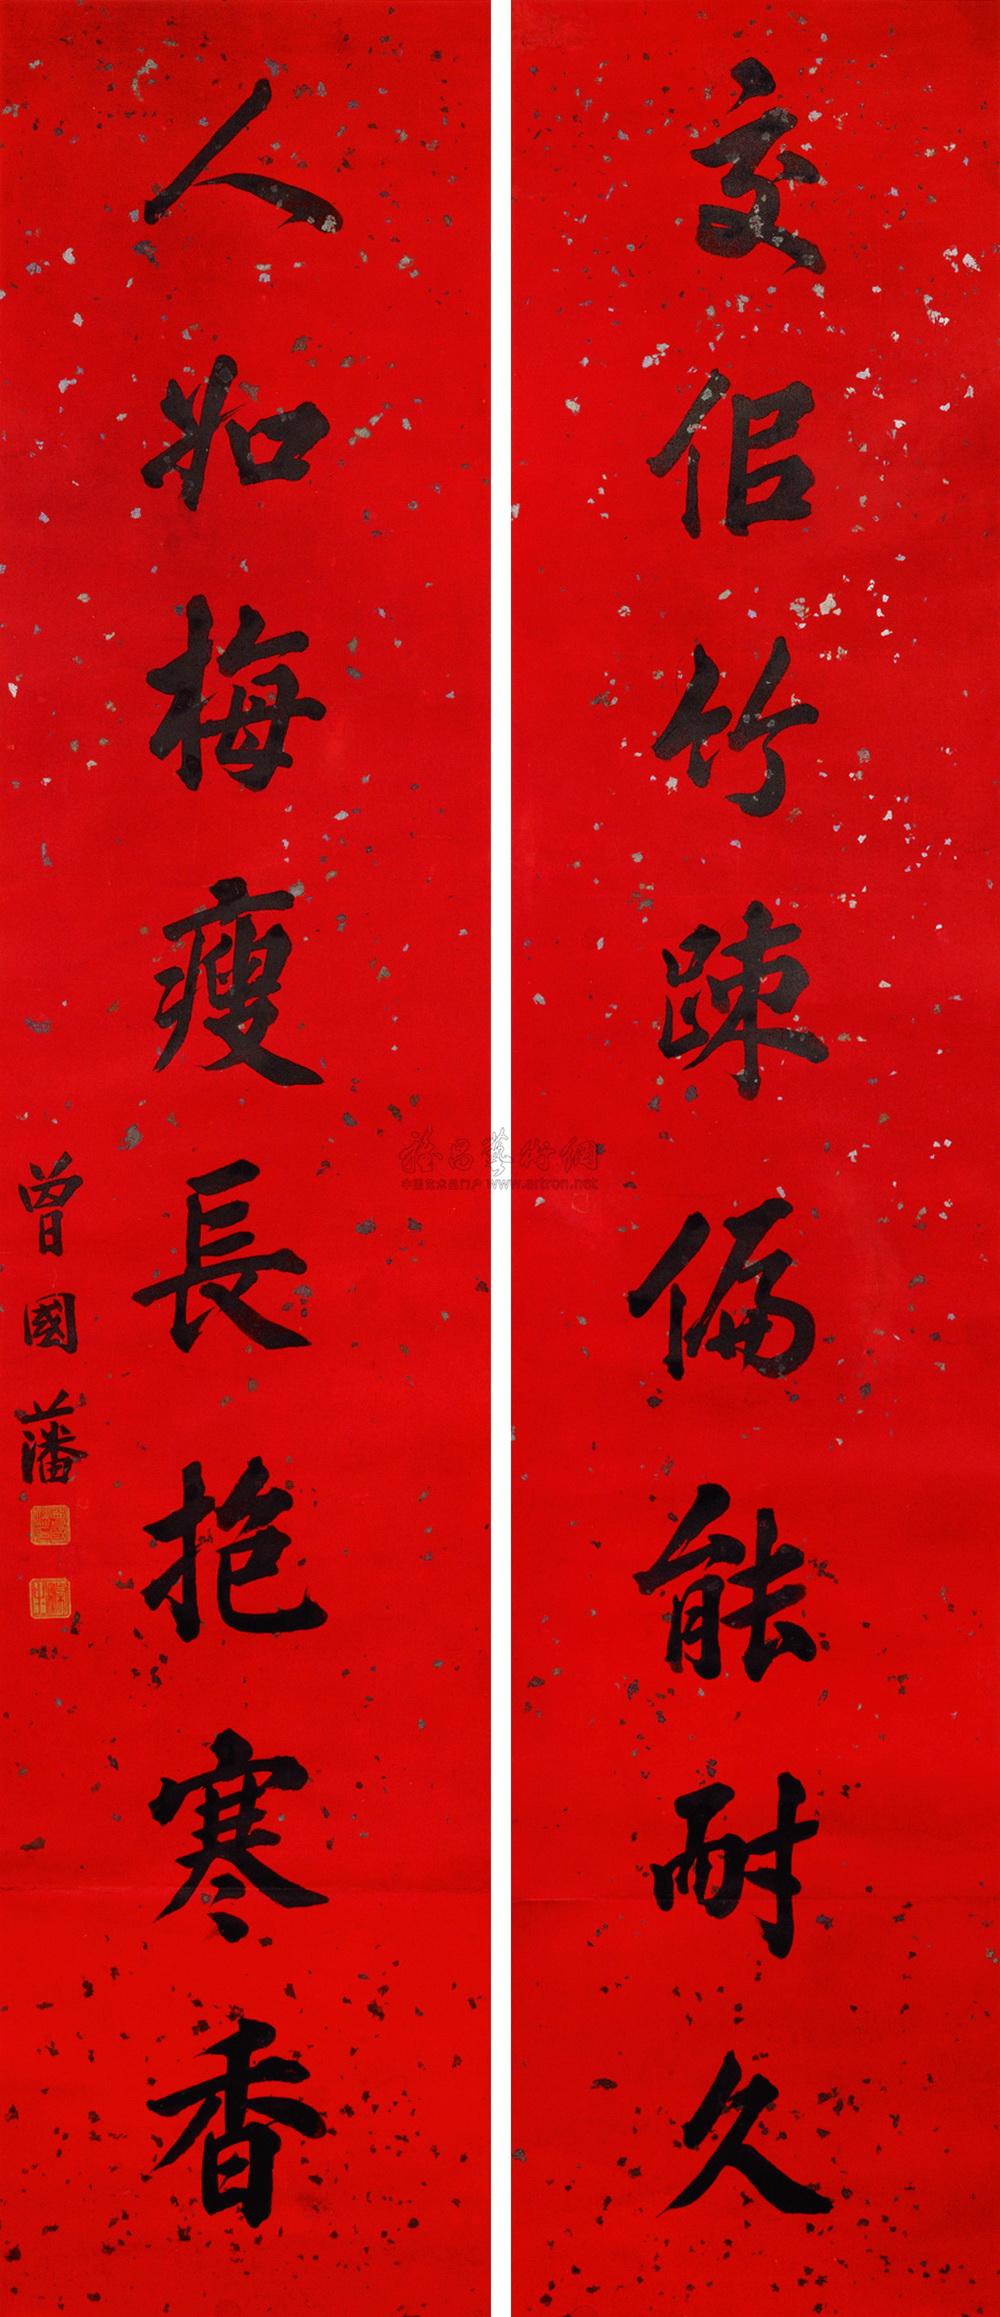 交佀竹疎偏能耐久
人如梅瘦長抱寒香
曾國藩
雅昌藝術網
中国艺术品门户 www.artron.net